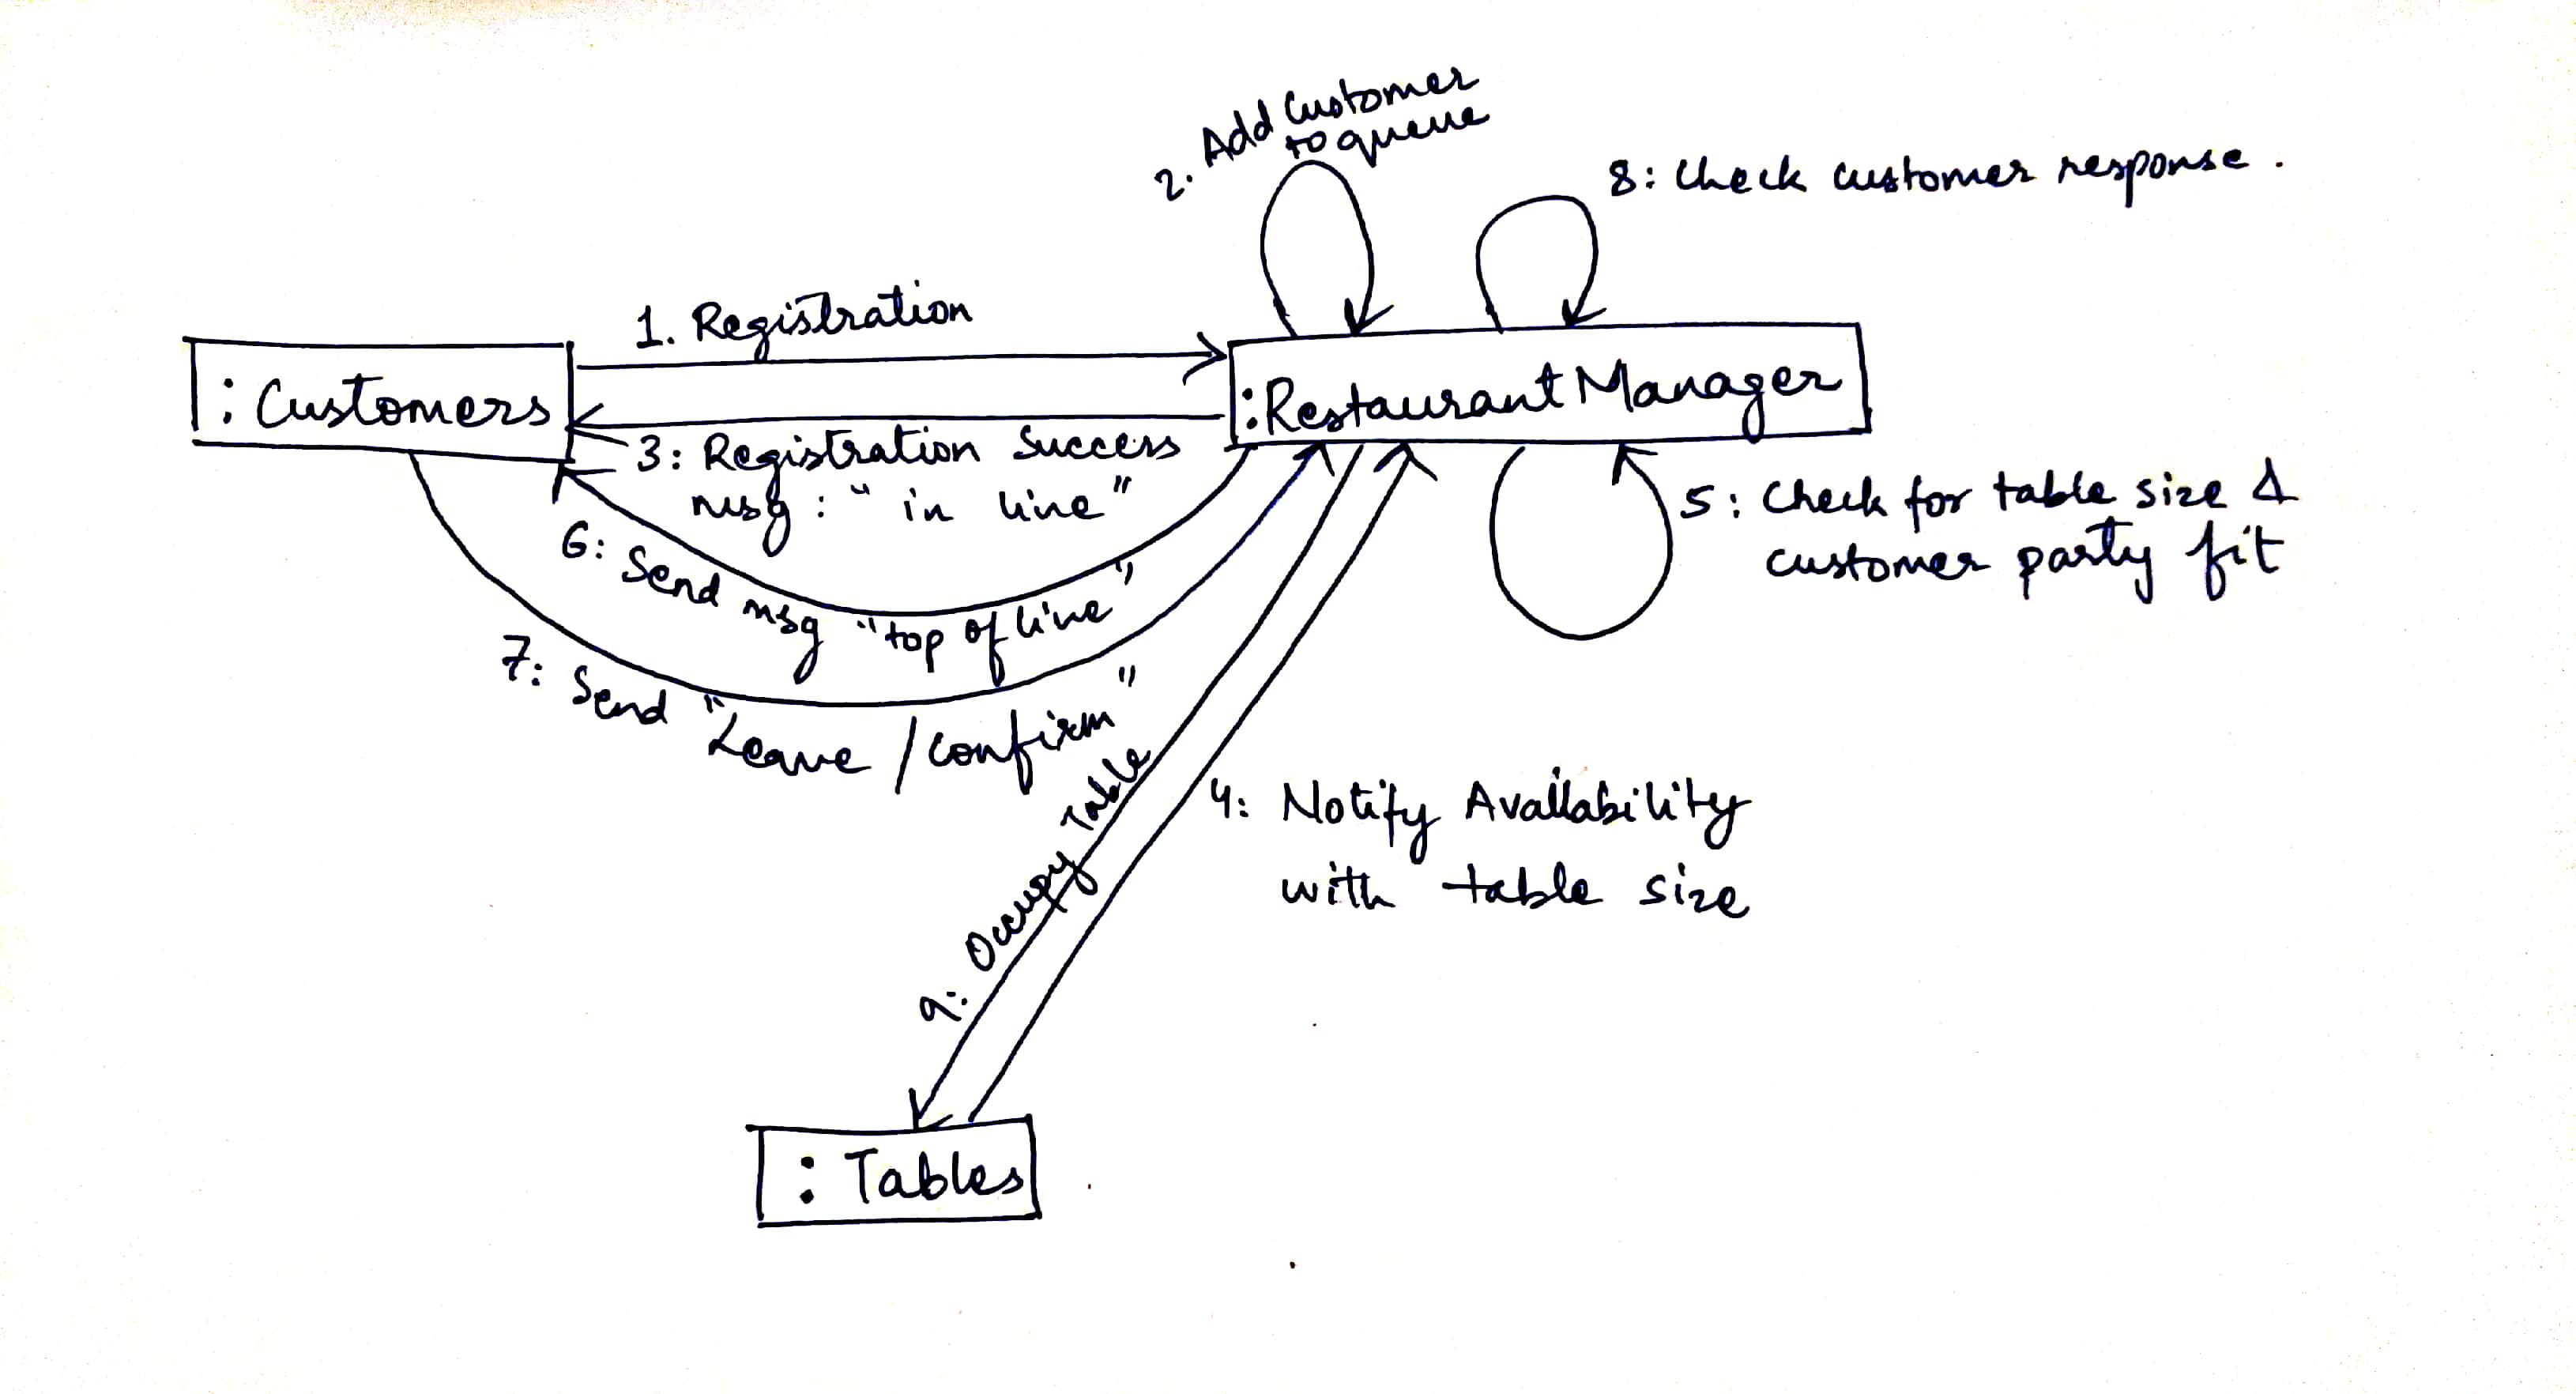 2. Add Customer
to queue
8: Check customer response.
1. Registration
:Customers
:RestaurantManager
3: Registration Success
msg: "in line"
5: Check for table size &
customer party fit
6: Send msg "top of line"
7: Send "Leave/confirm"
9: Occupy Table
4: Notify Availability
with table size
: Tables